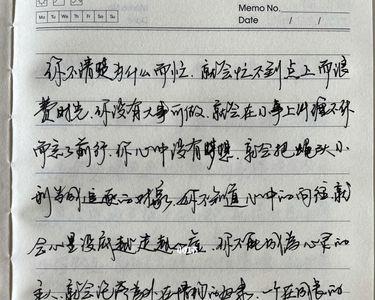 Memo No.
Mo Tu We Th Fr Sa Su
Date / /
你不清楚为什么而忙，就会忙不到点上而浪
费时光，你没有大事可做，就会在小事上纠缠不休
而忘了前行，你心中没有梦想，就会把蝇头小
利当成追逐的对象，你不知道心中的向往，就
会心里没底越走越心虚，你不能成为心灵的
主人，就会沦为外在情绪的奴隶，一个在因素的